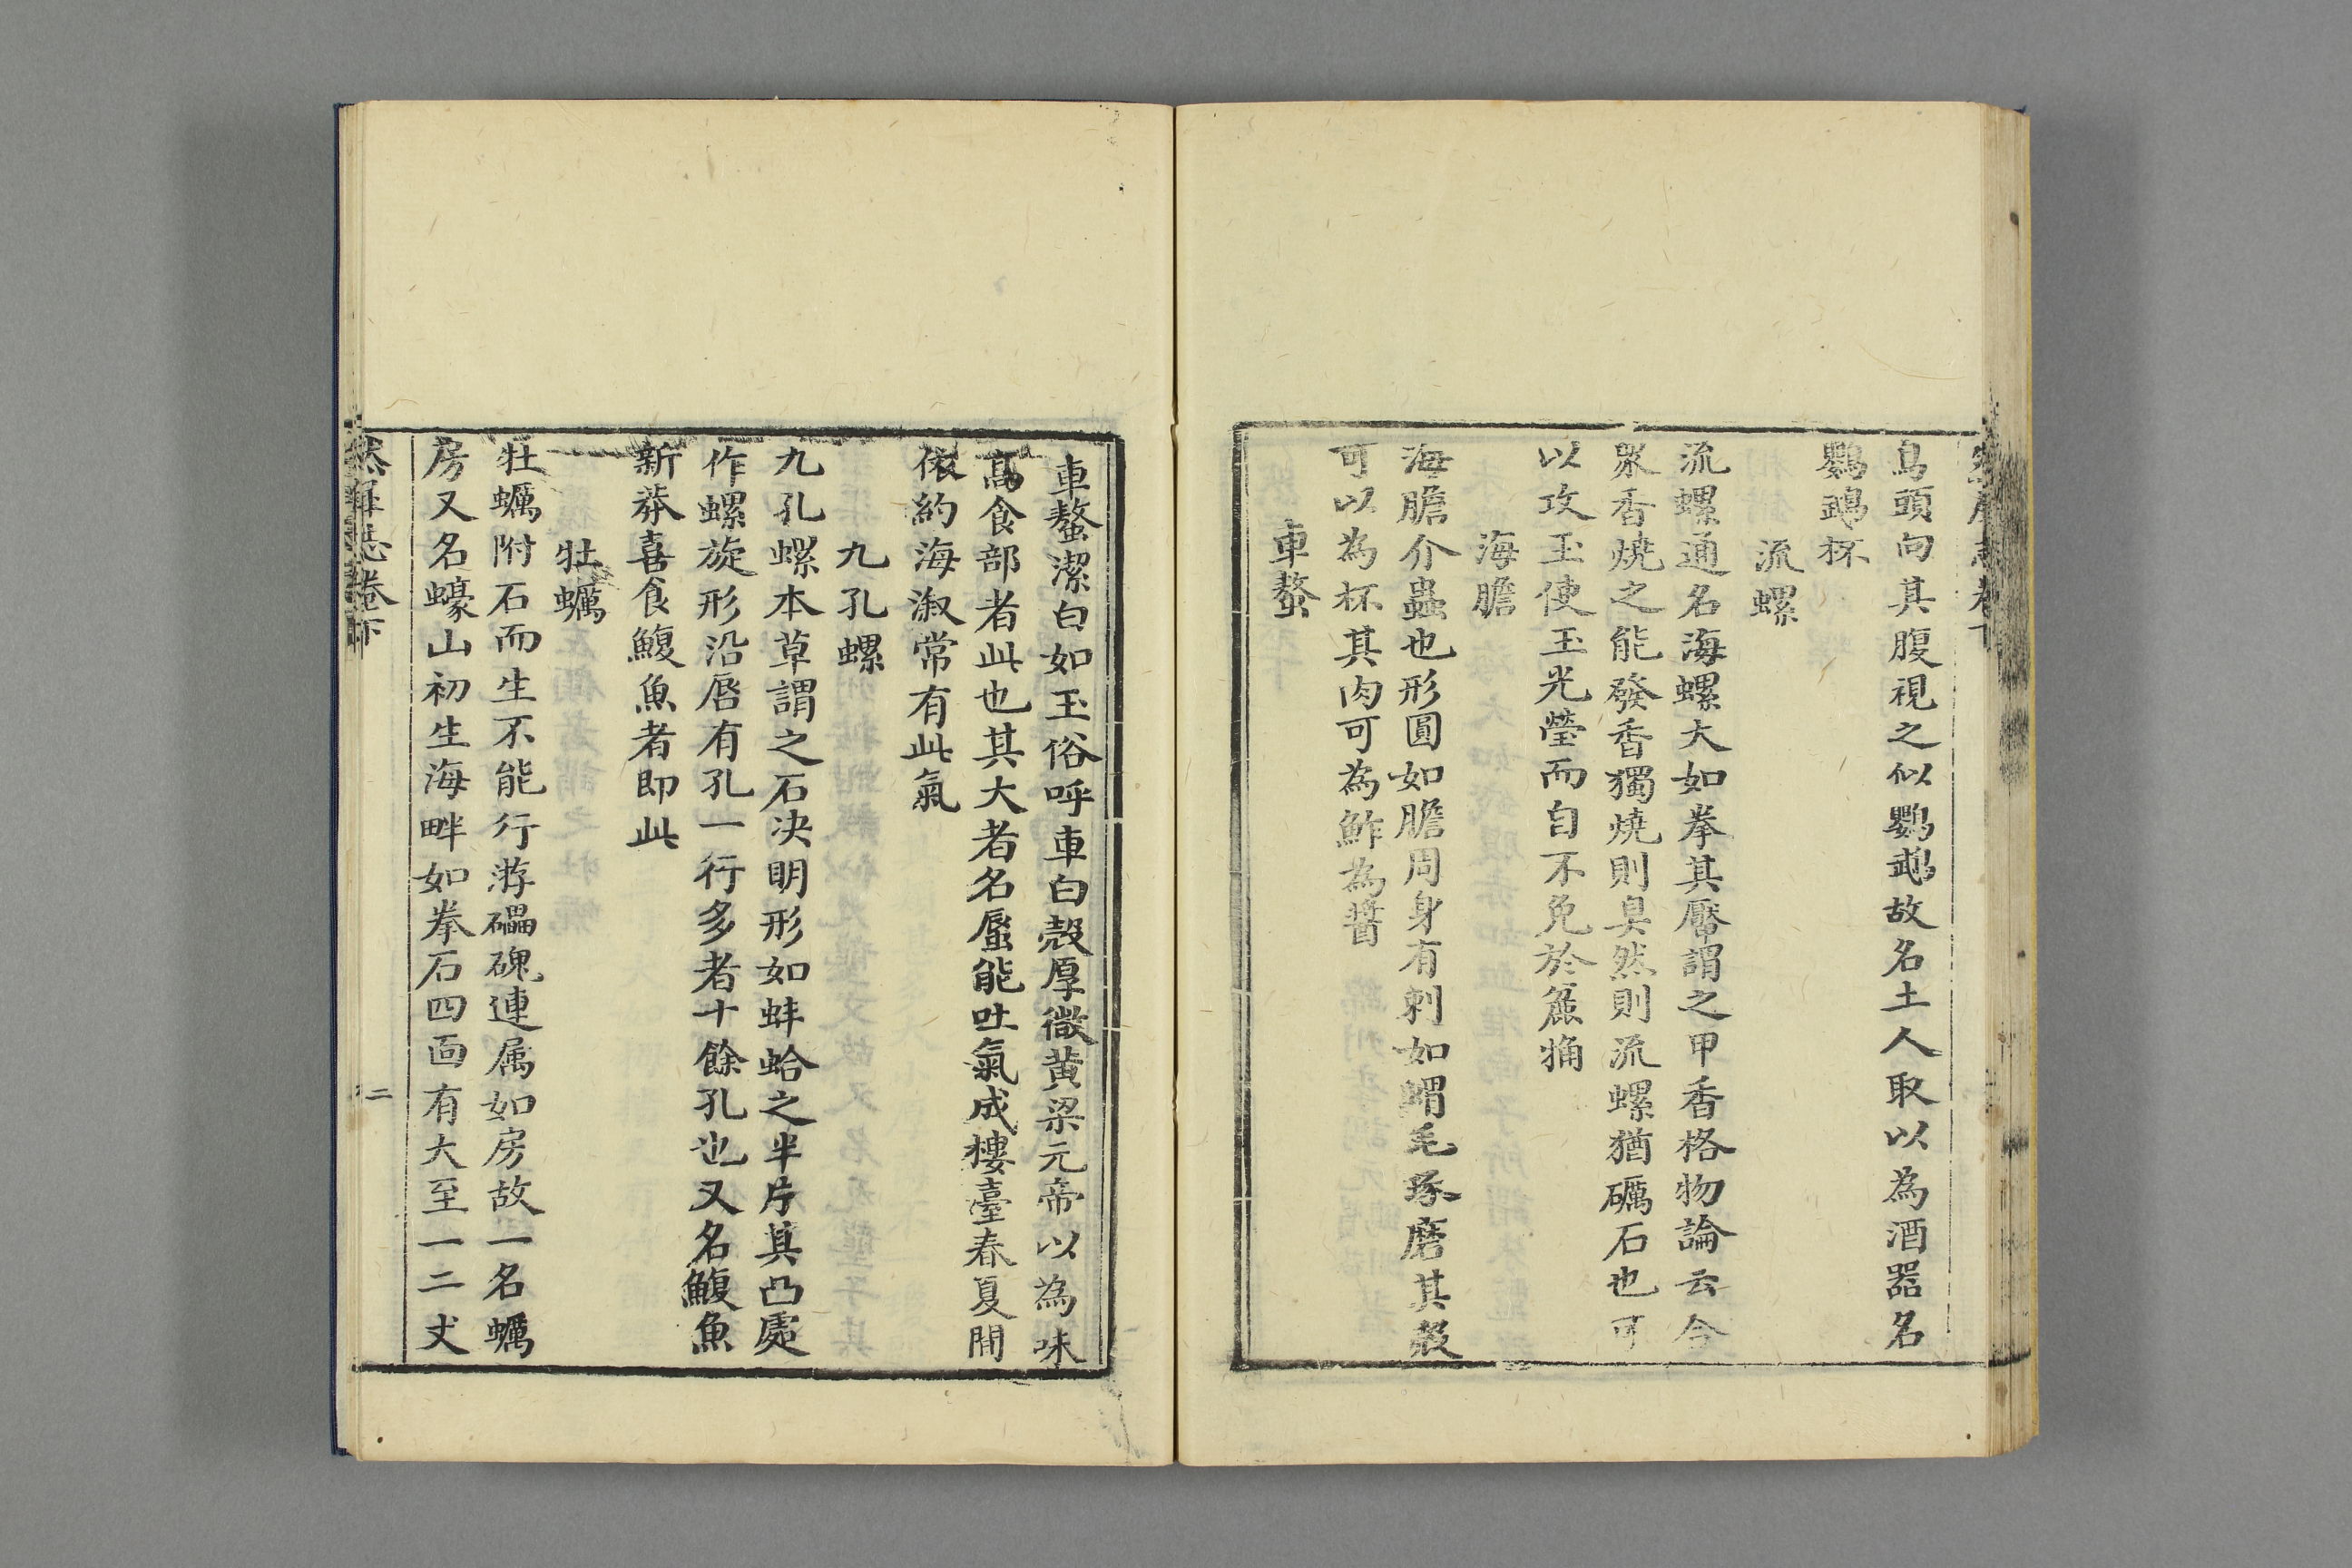 鳥頭向其腹視之似鸚鵡故名土人取以為酒器名
鸚鵡杯
流螺
流螺通名海螺大如拳其厴謂之甲香格物論云合
衆香燒之能發香獨燒則臭然則流螺猶礪石也可
以攻玉使玉光瑩而自不免於麄觕
海膽
海膽介蟲也形圓如膽周身有刺如蝟毛琢磨其殻
可以為杯其肉可為鮓為醬
車螯
車螯潔白如玉俗呼車白殻厚微黄梁元帝以為味
髙食部者此也其大者名蜃能吐氣成樓臺春夏間
依約海溆常有此氣
九孔螺
九孔螺本草謂之石决明形如蚌蛤之半片其凸處
作螺旋形沿唇有孔一行多者十餘孔也又名鰒魚
新莽喜食鰒魚者即此
牡蠣
牡蠣附石而生不能行游礧磈連属如房故一名蠣
房又名蠔山初生海畔如拳石四面有大至一二丈
然犀志卷下
二